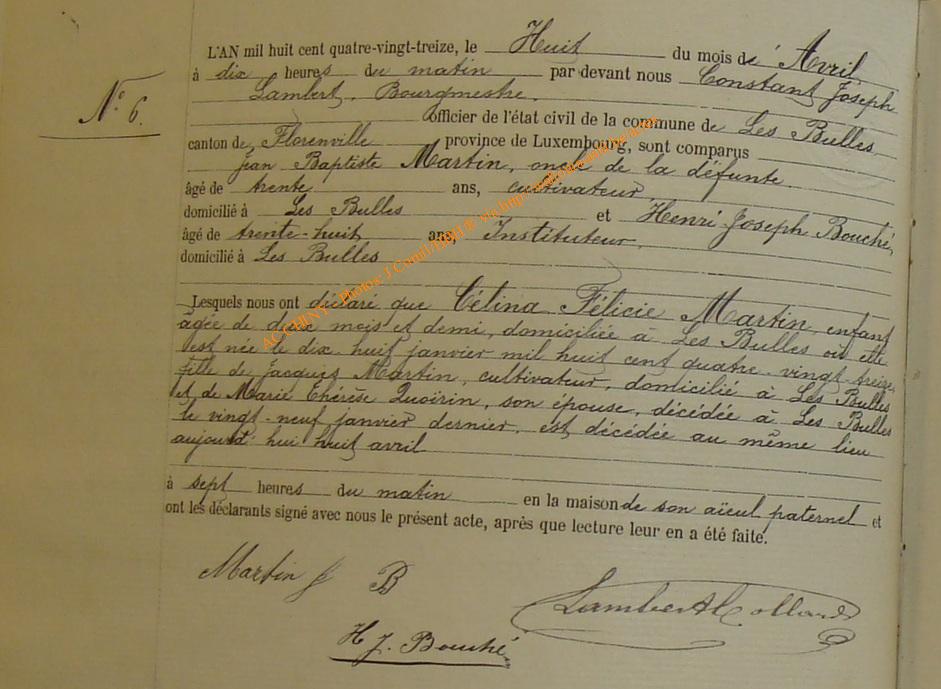 L'AN mil huit cent quatre-vingt-treize, le Huit du mois de Avril
à dix heures du matin par devant nous Constant Joseph
Lambert, Bourgmestre,
N° 6.
officier de l'état civil de la commune de Les Bulles
canton de Florenville province de Luxembourg, sont comparus
jean Baptiste Martin, oncle de la défunte
âgé de trente ans, cultivateur
domicilié à Les Bulles et Henri Joseph Bouché,
âgé de trente-huit ans Instituteur,
domicilié à Les Bulles
Lesquels nous ont déclaré que Célina Félicie Martin, enfant
âgée de deux mois et demi, domiciliée à Les Bulles où elle
est née le dix-huit janvier mil huit cent quatre-vingt-treize,
fille de Jacques Martin, cultivateur, domicilié à Les Bulles
et de Marie Thérèse Quoirin, son épouse, décédée à Les Bulles
le vingt-neuf janvier dernier, est décédée au même lieu
aujourd'hui huit avril
à sept heures du matin en la maison de son aïeul paternel et
ont les déclarants signé avec nous le présent acte, après que lecture leur en a été faite.
Martin J B
Lambert Collard
H J. Bouché
ACCHINY Photos: J